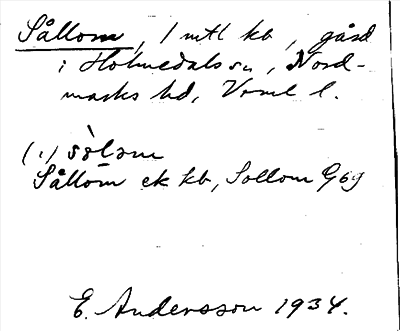 Sållom, 1 mtl kb, gård
i Holmedals sn, Nord-
marks hd, Vrml l.
(i) sòlɔm
Sållom ek kb, Sollom G69
E. Andersson 1934.